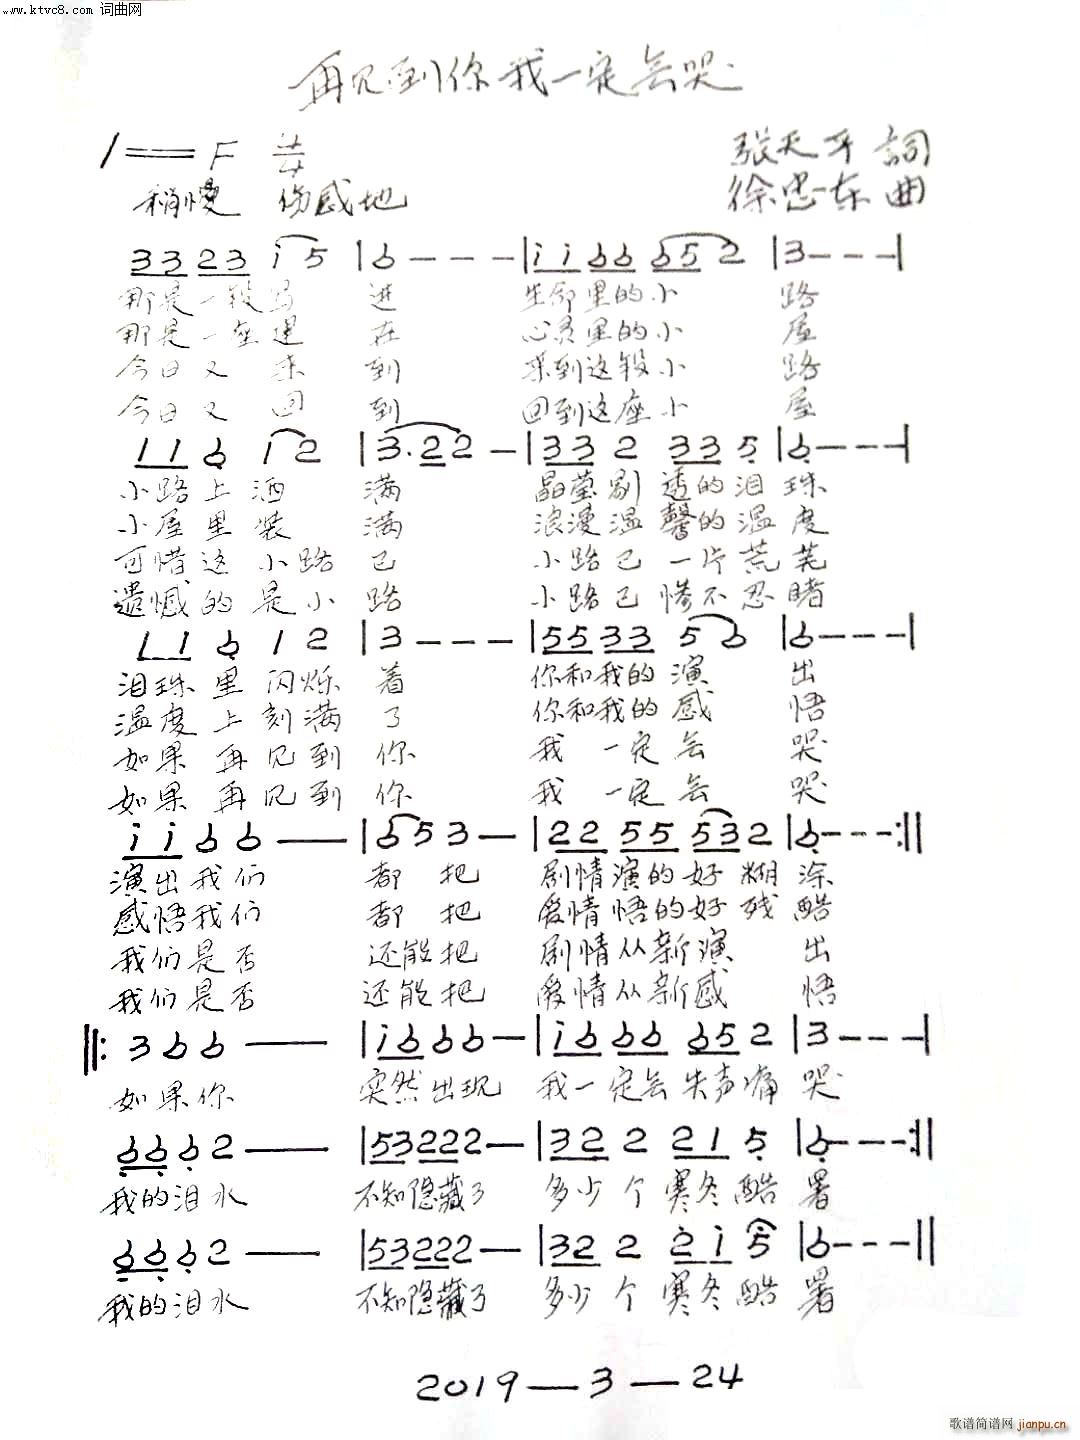 www.ktvc8.com 词曲网
再见到你我一定会哭
1=F 4/4
张天平 詞
稍慢 伤感地
徐忠东 曲
33 23 i 5 | 6 - - - | i i 66 65 2 | 3 - - - |
那是一段写进生命里的小路
那是一座建在心灵里的小屋
今日又来到来到这段小路
今日又回到回到这座小屋
11 6 1 2 | 3. 2 2 - | 33 2 33 5 | 6 - - - |
小路上洒满晶莹剔透的泪珠
小屋里装满浪漫温馨的温度
可惜这小路已小路已一片荒芜
遗憾的是小路小路已惨不忍睹
11 6 1 2 | 3 - - - | 55 33 5 6 | 6 - - - |
泪珠里闪烁着你和我的演出
温度上刻满了你和我的感悟
如果再见到你我一定会哭
如果再见到你我一定会哭
i i 6 6 — | 6 5 3 - | 22 55 53 2 | 6 - - - :||
演出我们都把剧情演的好糊涂
感悟我们都把爱情悟的好残酷
我们是否还能把剧情从新演出
我们是否还能把爱情从新感悟
||: 3 6 6 — | i 6 6 6 - | i 6 66 65 2 | 3 - - - |
如果你突然出现我一定会失声痛哭
66 6 2 — | 53 22 2 - | 32 2 21 5 | 6 - - - :||
我的泪水不知隐藏了多少个寒冬酷署
66 6 2 — | 53 22 2 - | 32 2 2 i 5 | 6 - - - ||
我的泪水不知隐藏了多少个寒冬酷署
2019—3—24
歌谱简谱网 jianpu.cn